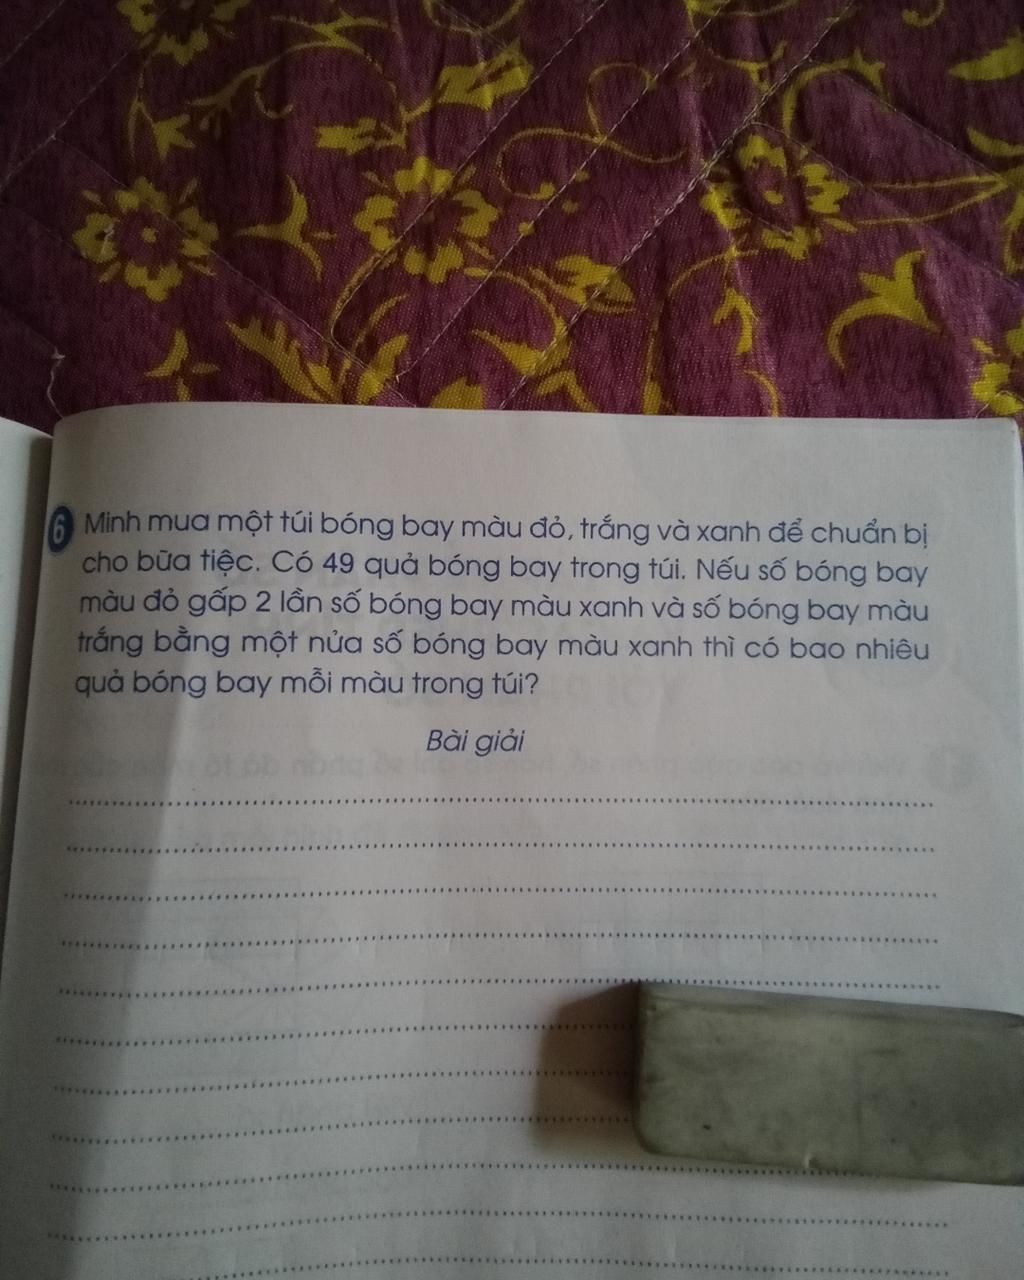 6 Minh mua một túi bóng bay màu đỏ, trắng và xanh để chuẩn bị
cho bữa tiệc. Có 49 quả bóng bay trong túi. Nếu số bóng bay
màu đỏ gấp 2 lần số bóng bay màu xanh và số bóng bay màu
trắng bằng một nửa số bóng bay màu xanh thì có bao nhiêu
quả bóng bay mỗi màu trong túi?
Bài giải